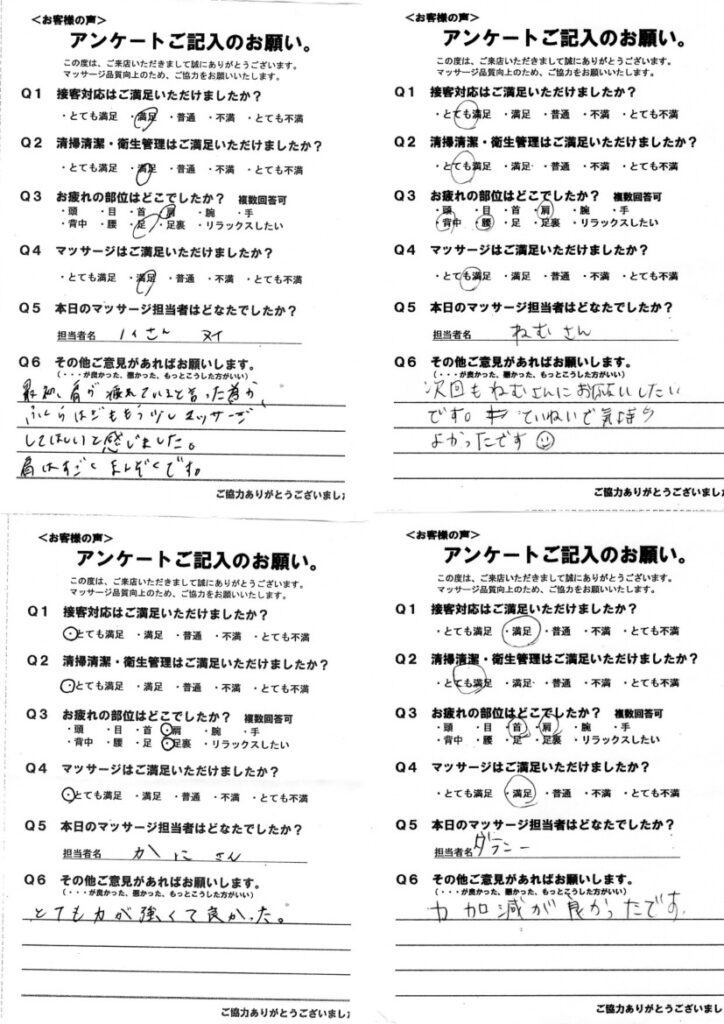 <お客様の声>
アンケートご記入のお願い。
この度は、ご来店いただきまして誠にありがとうございます。
マッサージ品質向上のため、ご協力をお願いいたします。
Q1 接客対応はご満足いただけましたか?
・とても満足 ・満足 ・普通 ・不満 ・とても不満
Q2 清掃清潔・衛生管理はご満足いただけましたか?
・とても満足 ・満足 ・普通 ・不満 ・とても不満
Q3 お疲れの部位はどこでしたか? 複数回答可
・頭 ・目 ・首 ・肩 ・腕 ・手
・背中 ・腰 ・足 ・足裏 ・リラックスしたい
Q4 マッサージはご満足いただけましたか?
・とても満足 ・満足 ・普通 ・不満 ・とても不満
Q5 本日のマッサージ担当者はどなたでしたか?
担当者名 さん
Q6 その他ご意見があればお願いします。
(・・・が良かった、悪かった、もっとこうした方がいい)
最初、肩が疲れていると言った為か、
ふくらはぎももう少しマッサージ
してほしいと感じました。
肩はすごくまんぞくです。
ご協力ありがとうございまし
<お客様の声>
アンケートご記入のお願い。
この度は、ご来店いただきまして誠にありがとうございます。
マッサージ品質向上のため、ご協力をお願いいたします。
Q1 接客対応はご満足いただけましたか?
・とても満足 ・満足 ・普通 ・不満 ・とても不満
Q2 清掃清潔・衛生管理はご満足いただけましたか?
・とても満足 ・満足 ・普通 ・不満 ・とても不満
Q3 お疲れの部位はどこでしたか? 複数回答可
・頭 ・目 ・首 ・肩 ・腕 ・手
・背中 ・腰 ・足 ・足裏 ・リラックスしたい
Q4 マッサージはご満足いただけましたか?
・とても満足 ・満足 ・普通 ・不満 ・とても不満
Q5 本日のマッサージ担当者はどなたでしたか?
担当者名 ねむさん
Q6 その他ご意見があればお願いします。
(・・・が良かった、悪かった、もっとこうした方がいい)
次回もねむさんにおねがいしたい
です。ていねいで気持ち
よかったです
ご協力ありがとうございまし
<お客様の声>
アンケートご記入のお願い。
この度は、ご来店いただきまして誠にありがとうございます。
マッサージ品質向上のため、ご協力をお願いいたします。
Q1 接客対応はご満足いただけましたか?
・とても満足 ・満足 ・普通 ・不満 ・とても不満
Q2 清掃清潔・衛生管理はご満足いただけましたか?
・とても満足 ・満足 ・普通 ・不満 ・とても不満
Q3 お疲れの部位はどこでしたか? 複数回答可
・頭 ・目 ・首 ・肩 ・腕 ・手
・背中 ・腰 ・足 ・足裏 ・リラックスしたい
Q4 マッサージはご満足いただけましたか?
・とても満足 ・満足 ・普通 ・不満 ・とても不満
Q5 本日のマッサージ担当者はどなたでしたか?
担当者名 かにさん
Q6 その他ご意見があればお願いします。
(・・・が良かった、悪かった、もっとこうした方がいい)
とても力が強くて良かった。
ご協力ありがとうございまし
<お客様の声>
アンケートご記入のお願い。
この度は、ご来店いただきまして誠にありがとうございます。
マッサージ品質向上のため、ご協力をお願いいたします。
Q1 接客対応はご満足いただけましたか?
・とても満足 ・満足 ・普通 ・不満 ・とても不満
Q2 清掃清潔・衛生管理はご満足いただけましたか?
・とても満足 ・満足 ・普通 ・不満 ・とても不満
Q3 お疲れの部位はどこでしたか? 複数回答可
・頭 ・目 ・首 ・肩 ・腕 ・手
・背中 ・腰 ・足 ・足裏 ・リラックスしたい
Q4 マッサージはご満足いただけましたか?
・とても満足 ・満足 ・普通 ・不満 ・とても不満
Q5 本日のマッサージ担当者はどなたでしたか?
担当者名 ダラニー
Q6 その他ご意見があればお願いします。
(・・・が良かった、悪かった、もっとこうした方がいい)
力加減が良かったです
ご協力ありがとうございまし